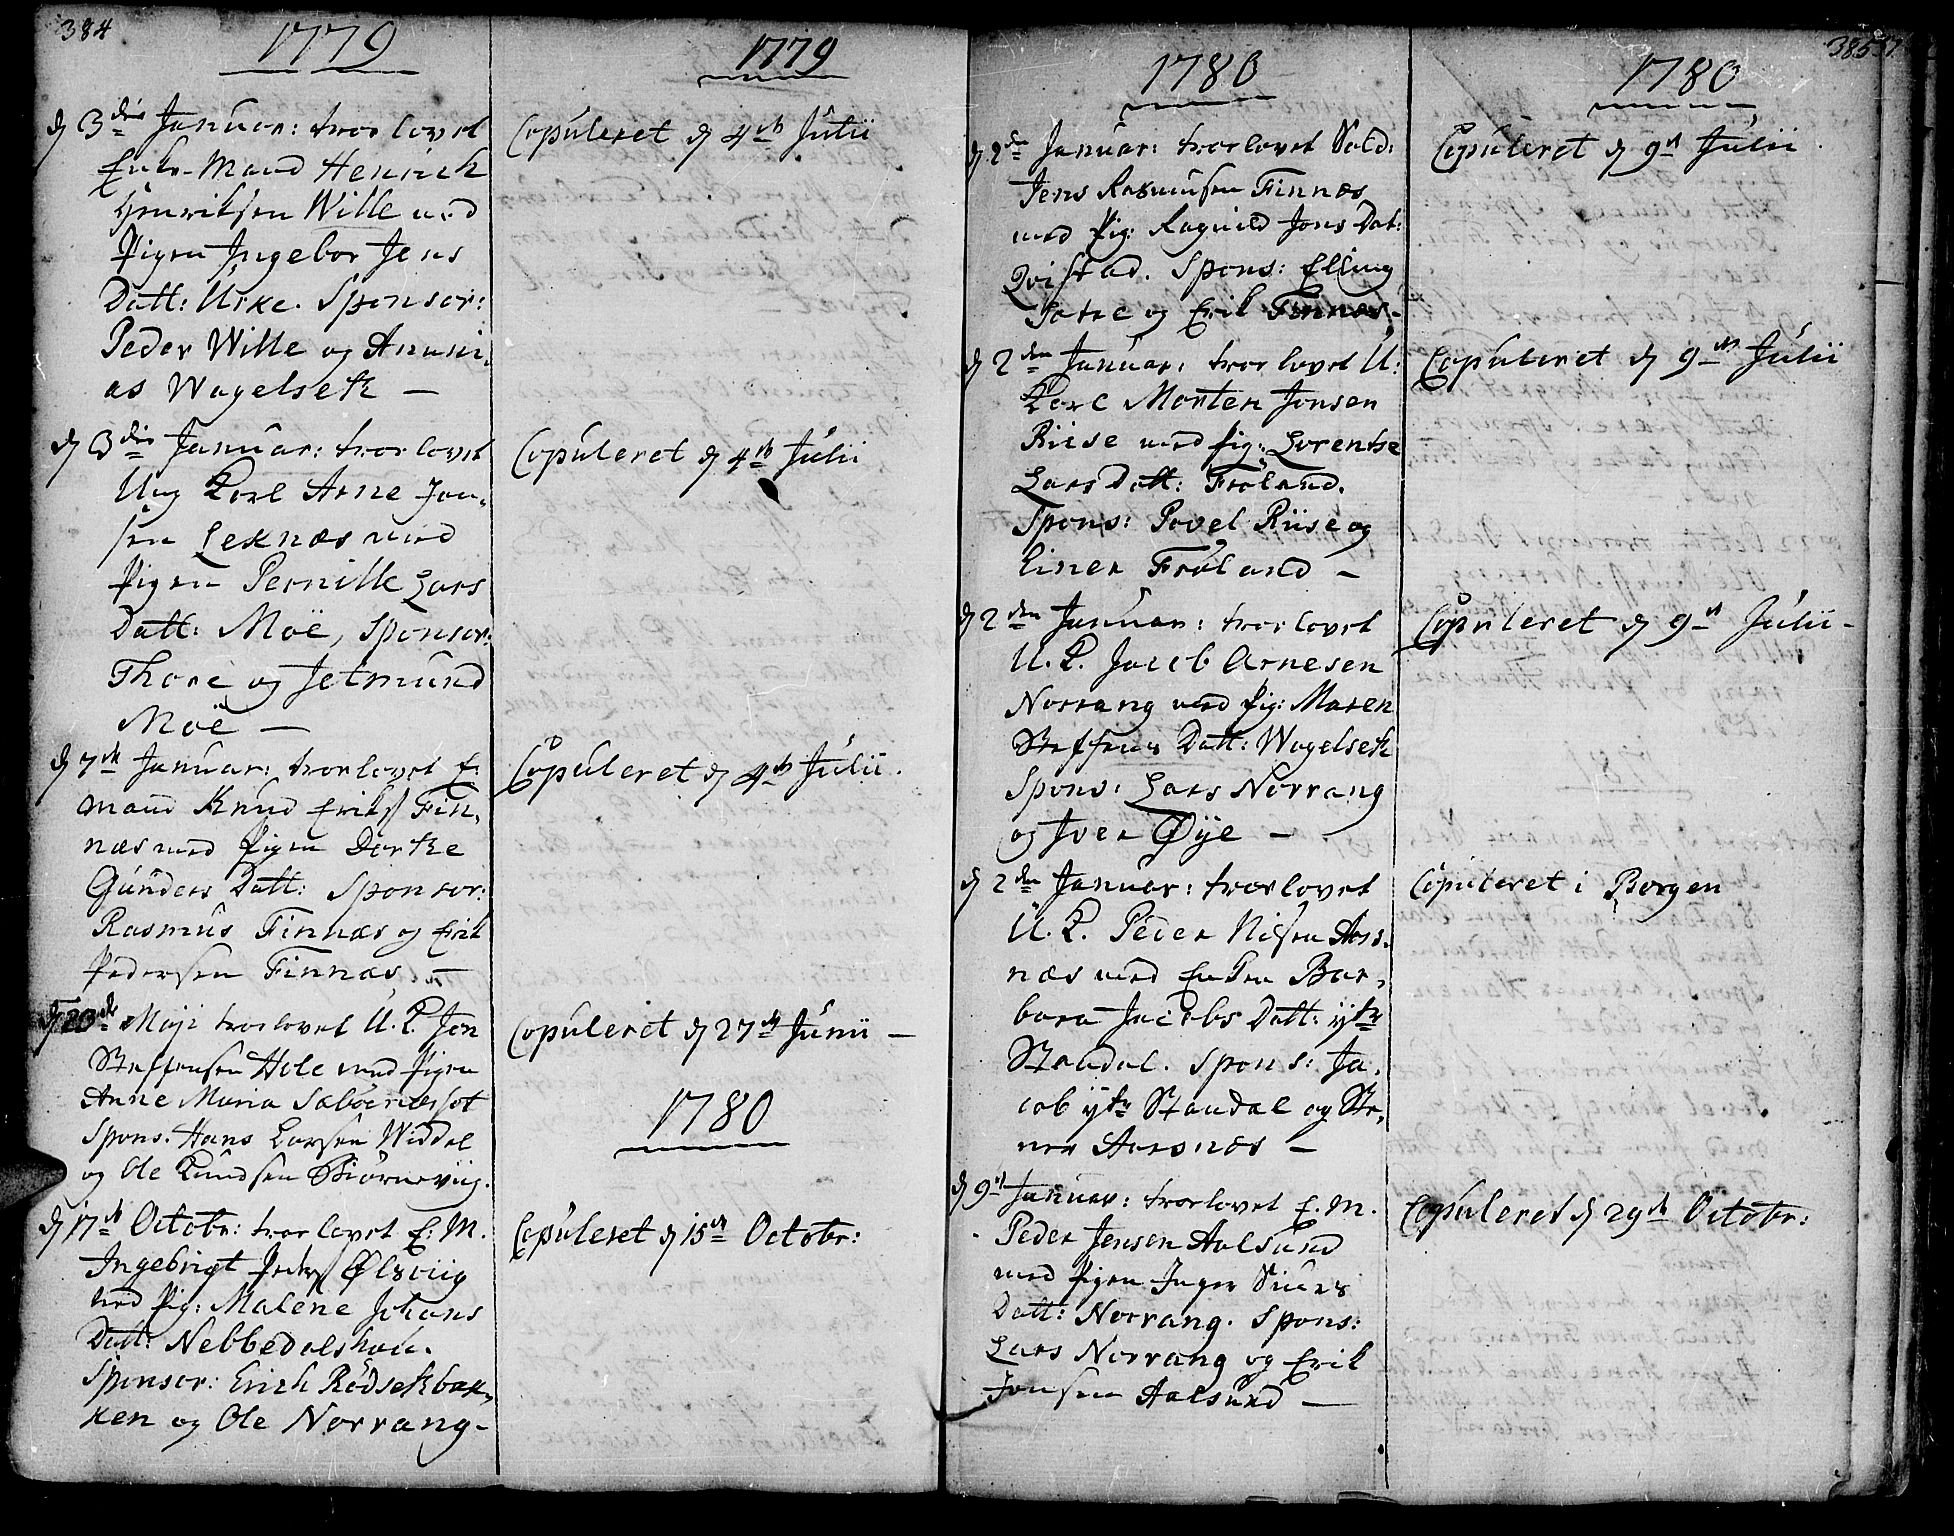 384
1779
d 3die Januar: trorlovet
Enke-Mand Henrich
Henriksen Wille med
Pigen Ingebor Jens
Datt: Urke. Sponsor:
Peder Wille og Anani-
as Wagelsetk —
d 3die Januar: trorlovet
Ung Karl Arne Jon-
sen Leknæs med
Pigen Pernille Lars
Datt: Moë, Sponsor:
Thore og Jetmund
Moë —
d 7de Januar: trorlovet E:
mand Knud Eriks Fin-
næs med Pigen Dorthe
Gunders Datt: Sponsor:
Rasmus Finnæs og Erik
Pedersen Finnæs —
d 20de Maji trorlovet U. K. Jon
Steffensen Hole med Pigen
Anne Maria Sæböenæsset
Spons. Hans Larsen Widdal
og Ole Knudsen Biörneviig.
d 17de Octobr: trorlovet E: M.
Ingebrigt Peders Ølsviig
med Pig: Malene Johans
Datt: Nebbedalshou.
Sponsor: Erich Rödsetkbak-
ken og Ole Norrang-
1779
Copuleret d 4de Julii
Copuleret d 4de Julii
Copuleret d 4de Julii.
Copuleret d 27de Junii —
1780
Copuleret d 15de Octobr:
1780
d 2den Januar: trorlovet Sold:
Jens Rasmusen Finnæs
med Pig: Ragnild Jons Dat:
Qvistad. Spons: Elling
Satre og Erik Finnæs-
d 2den Januar: trorlovet U:
Karl Morten Jonsen
Riise med Pig: Lorentse
Lars Datt: Fröland.
Spons: Povel Riise og
Einer Fröland —
d 2den Januar: trorlovet
U. K. Jacob Arnesen
Norrang med Pig: Maren
Steffens Datt: Wagelsetk
Spons: Lars Norrang
og Iver Øÿe —
d 2den Januar: trorlovet
U. K. Peder Nilsen Aars-
næs med Enken Bar-
bara Jacobs Datt: ÿtre
Standal. Spons: Ja-
cob ÿtre Standal og Ste-
ner Aarsnæs —
d 9de Januar: trorlovet E. M.
Peder Jensen Aalsund
med Pigen Inger Siurs
Datt: Norrang. Spons:
Lars Norrang og Erik
Jonsen Aalsund —
385
1780
Copuleret d 9de Julii.
Copuleret d 9de Julii
Copuleret d 9de Julii-
Copuleret i Borgen
Copuleret d 29de Octobr: